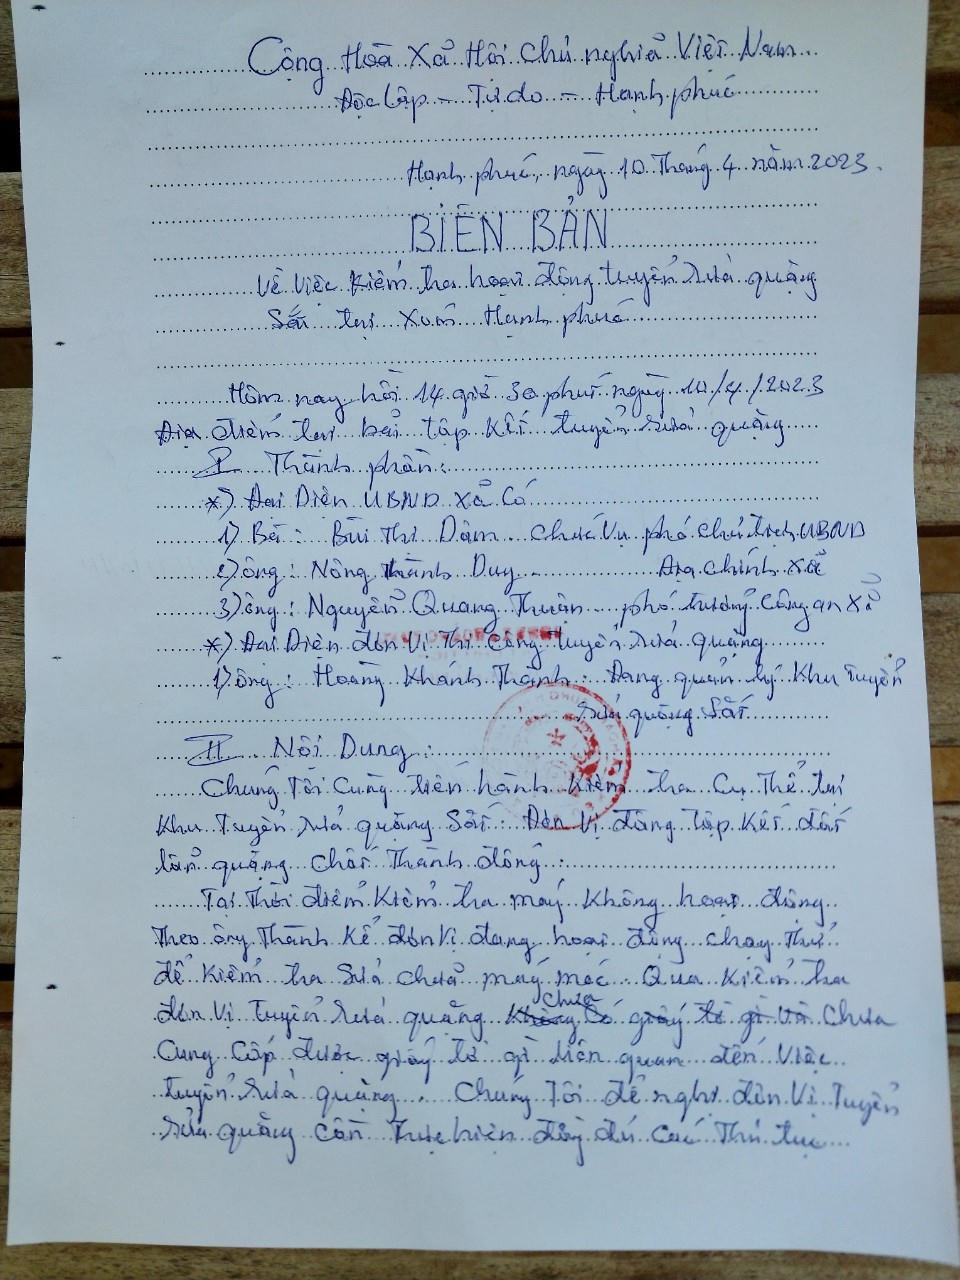 Cộng Hoà Xả Hội Chủ nghiả Việt Nam
Độc lập - Tự do - Hạnh phúc
Hạnh phúc, ngày 10 Tháng 4 năm 2023.
BIÊN BẢN
Về việc Kiểm tra hoạt động tuyển rửa quặng
Sắt tại Xóm Hạnh phúc
Hôm nay hồi 14 giờ 30 phút ngày 10/4/2023
Địa điểm tại bải tập Kết tuyển rửa quặng
I Thành phần:
*) Đại Diện UBND xã Có
1) Bà: Bùi Thị Dàm chức vụ phó chủ tịch UBND
2) ông: Nông Thành Duy Địa chính xã
3) ông: Nguyễn Quang Thuận phó trưởng công an xã
*) Đại Diện đơn vị Thi công tuyển rửa quặng
1) ông: Hoàng Khánh Thành: Đang quản lý Khu tuyển
rửa quặng Sắt
II Nội Dung:
Chúng Tôi Cùng tiến hành Kiểm tra Cụ Thể tại
Khu Tuyển rửa quặng Sắt: Đơn vị đang tập Kết đất
lẫn quặng chất Thành đống:
Tại Thời điểm Kiểm tra máy Không hoạt động
Theo ông Thành Kể đơn vị đang hoạt động chạy Thử
để Kiểm tra Sửa chửa máy móc. Qua Kiểm tra
đơn vị tuyển rửa quặng chưa
Cung Cấp được giấy tờ gì liên quan đến việc
tuyển rửa quặng. Chúng Tôi đề nghị đơn vị Tuyển
rửa quặng Cần Thực hiện đầy đủ Các Thủ tục